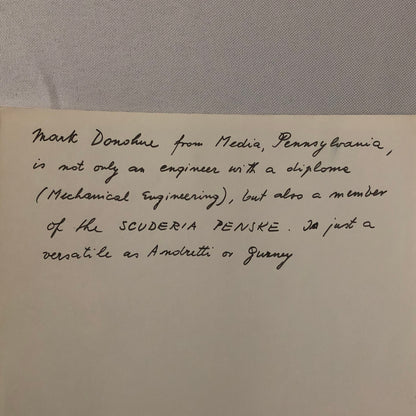 Mark Donohue from Media, Pennsylvania,
is not only an engineer with a diploma
(Mechanical Engineering), but also a member
of the SCUDERIA PENSKE. Is just a
versatile as Andretti or Gurney